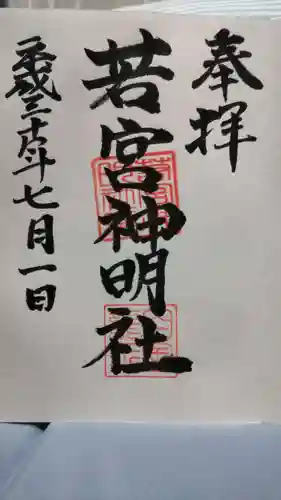 奉拝
若宮神明社
平成三十年七月一日